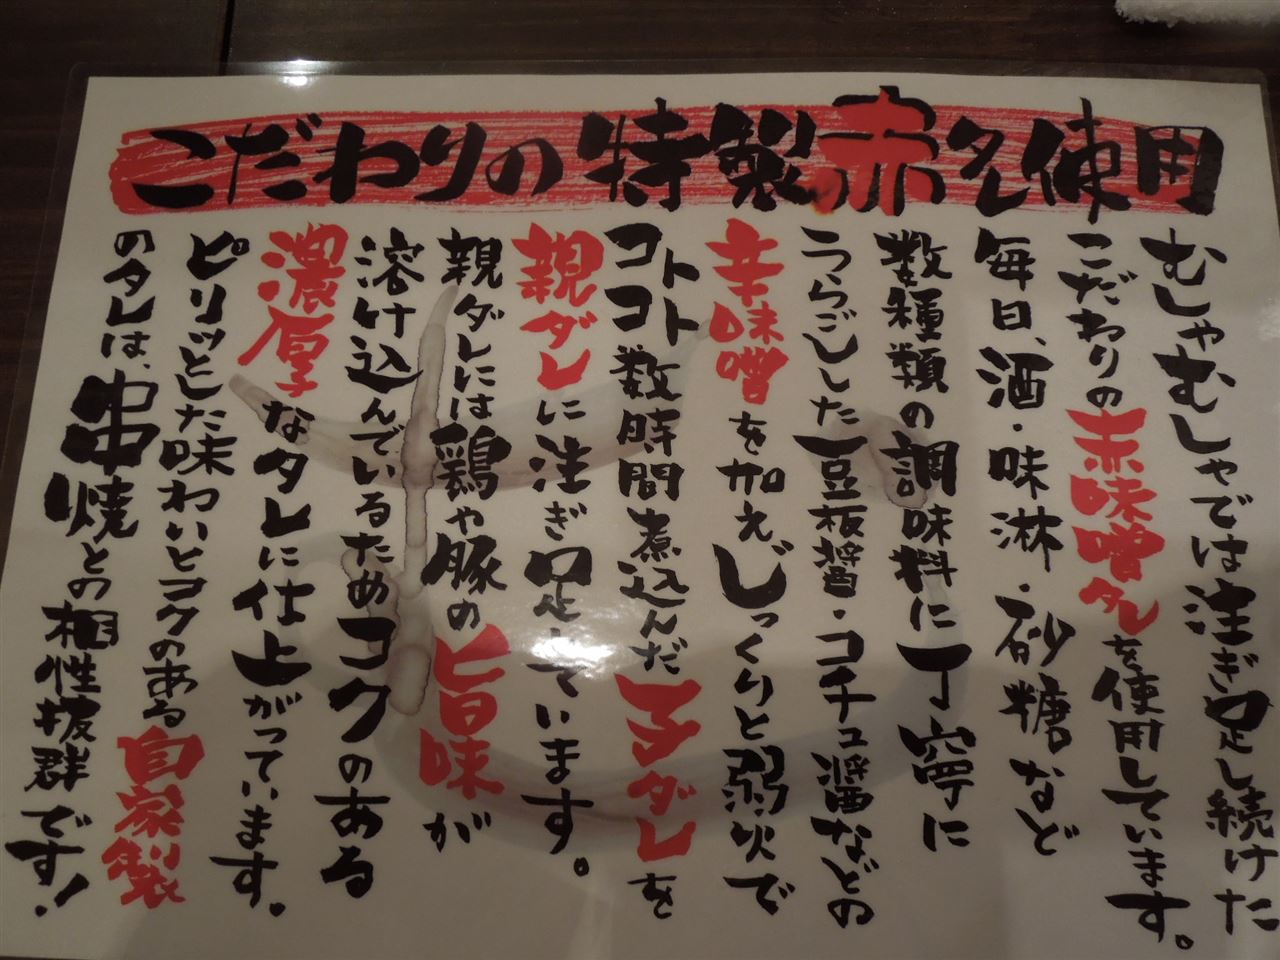 こだわりの特製赤タレ使用
むしゃむしゃでは注ぎ足し続けた
こだわりの赤味噌タレを使用しています。
毎日、酒・味淋・砂糖など
数種類の調味料に丁寧に
うらごしした豆板醤・コチュ醤などの
辛味噌を加え、じっくりと弱火で
コトコト数時間煮込んだ子ダレを
親ダレに注ぎ足しています。
親ダレには鶏や豚の旨味が
溶け込んでいるためコクのある
濃厚なタレに仕上がっています。
ピリッとした味わいとコクのある自家製
のタレは、串焼との相性抜群です!